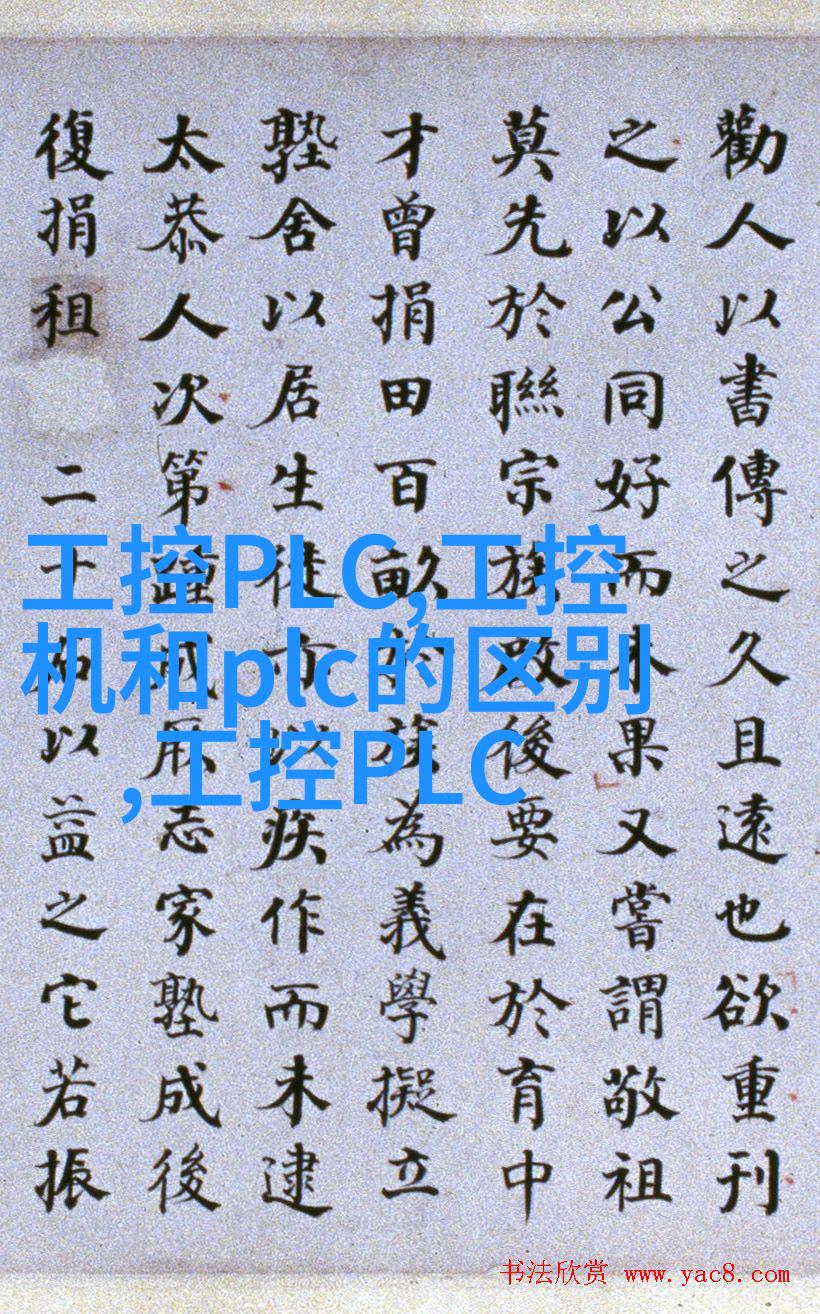 勸人以書傳之久且遠也欲重刊
之以公同好而未果又嘗謂敬祖
莫先於聯宗族啟後要在於育中
才曾捐田百畝於族為義學擬立
塾舍以居生徒以疾作而未逮
太恭人次第成厥志家塾成後
復捐租二十石以益之它若振
工控PLC,工控
机和plc的区别
,工控PLC
书法欣赏 www.yac8.com